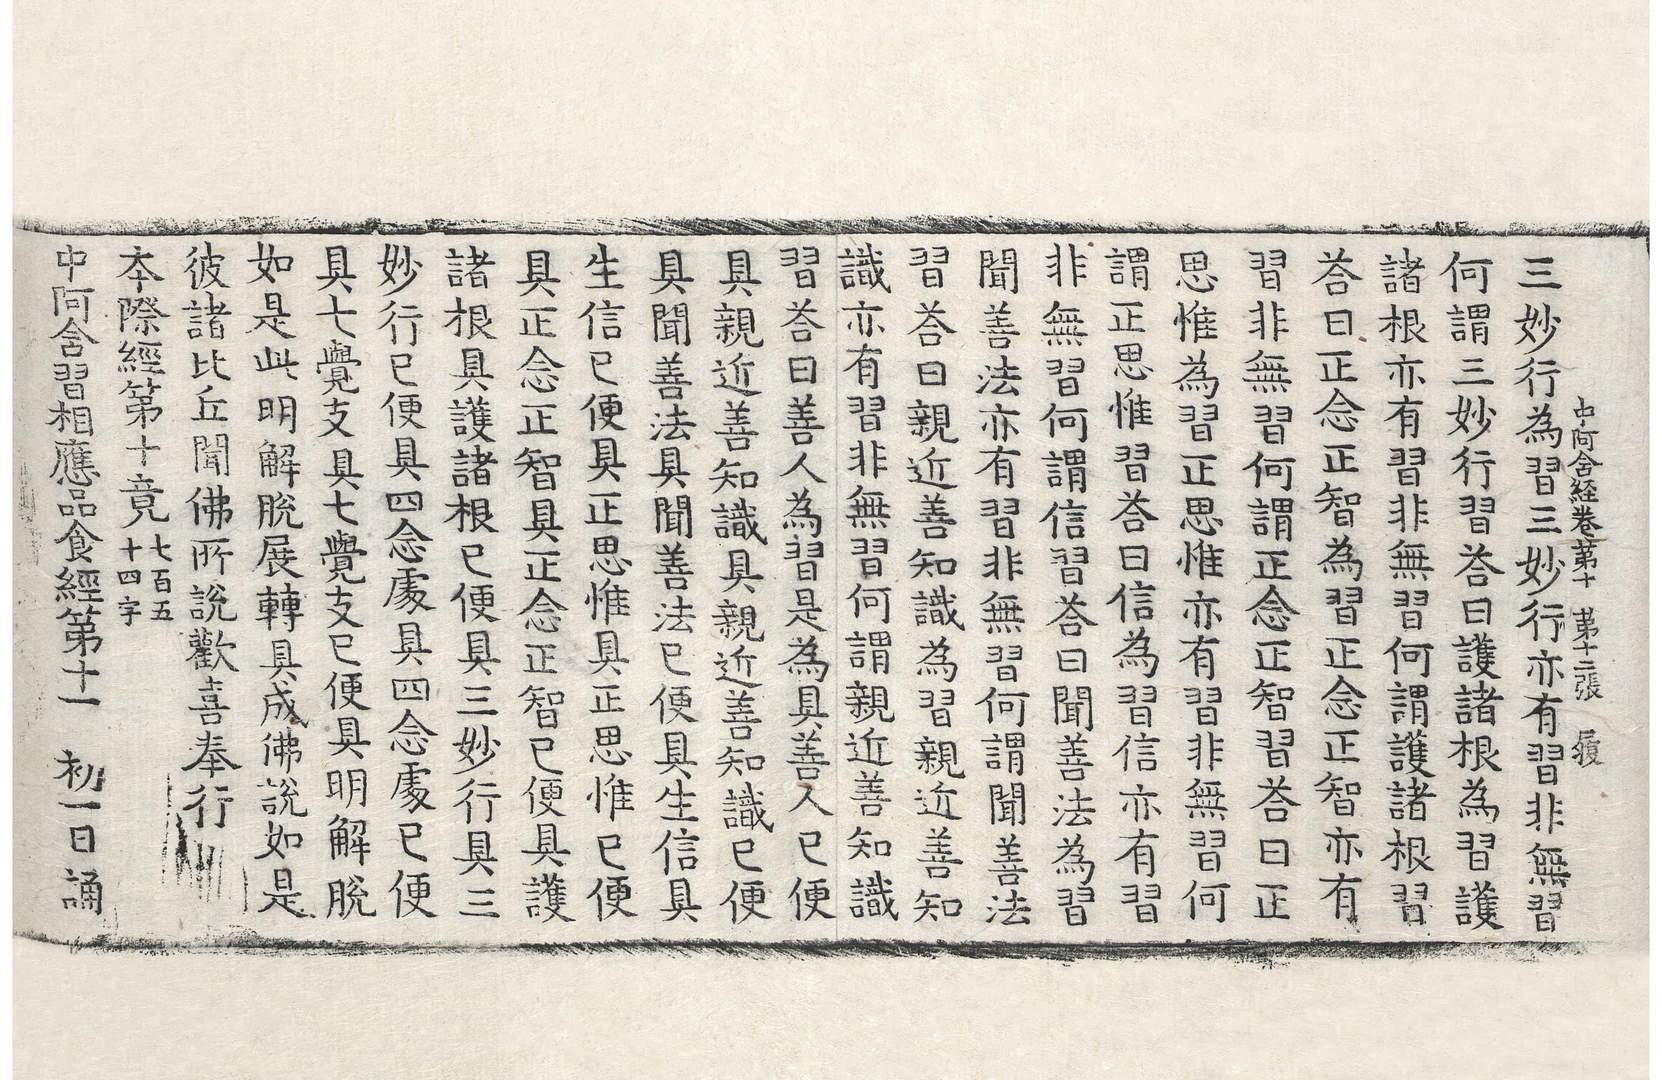 中阿含経卷第十　第十二張　履
三妙行為習三妙行亦有習非無習
何謂三妙行習荅曰護諸根為習護
諸根亦有習非無習何謂護諸根習
荅曰正念正智為習正念正智亦有
習非無習何謂正念正智習荅曰正
思惟為習正思惟亦有習非無習何
謂正思惟習荅曰信為習信亦有習
非無習何謂信習荅曰聞善法為習
聞善法亦有習非無習何謂聞善法
習荅曰親近善知識為習親近善知
識亦有習非無習何謂親近善知識
習荅曰善人為習是為具善人已便
具親近善知識具親近善知識已便
具聞善法具聞善法已便具生信具
生信已便具正思惟具正思惟已便
具正念正智具正念正智已便具護
諸根具護諸根已便具三妙行具三
妙行已便具四念處具四念處已便
具七覺支具七覺支已便具明解脫
如是此明解脫展轉具成佛說如是
彼諸比丘聞佛所說歡喜奉行
本際經第十竟七百五
十四字
中阿含習相應品食經第十一　初一日誦